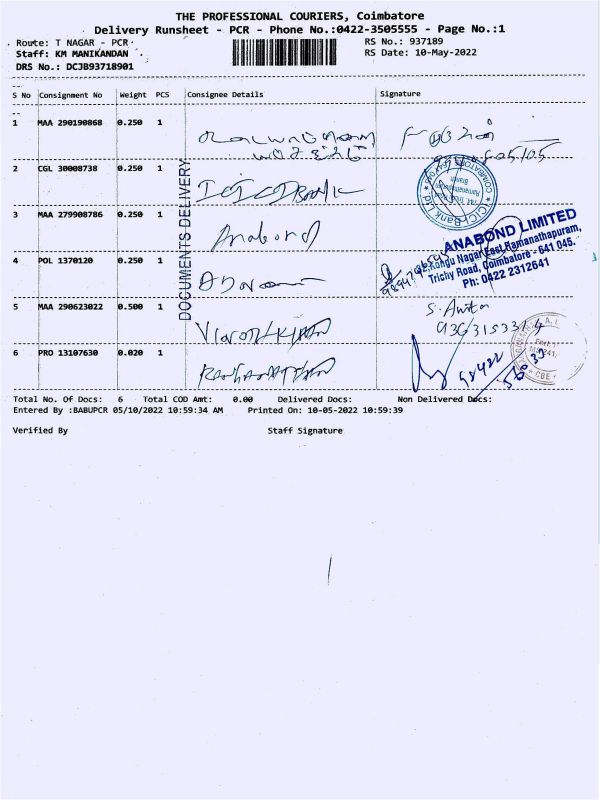 THE PROFESSIONAL COURIERS, Coimbatore
Delivery Runsheet - PCR - Phone No.:0422-3505555 - Page No.:1
Route: T NAGAR - PCR
RS No.: 937189
Staff: KM MANIKANDAN
RS Date: 10-May-2022
DRS No.: DCJB93718901
S No Consignment No Weight PCS Consignee Details Signature
1 MAA 290190868 0.250 1
2 CGL 30008738 0.250 1 ICICI BANK
3 MAA 279908786 0.250 1 Anabond
4 POL 1370120 0.250 1
5 MAA 290623022 0.500 1
6 PRO 13107630 0.020 1
DOCUMENTS DELIVERY
ICICI Bank Ltd
COIMBATORE
ANABOND LIMITED
Kongu Nagar East, Ramanathapuram,
Trichy Road, Coimbatore - 641 045.
Ph: 0422 2312641
Total No. Of Docs: 6 Total COD Amt: 0.00 Delivered Docs: Non Delivered Docs:
Entered By :BABUPCR 05/10/2022 10:59:34 AM Printed On: 10-05-2022 10:59:39
Verified By Staff Signature